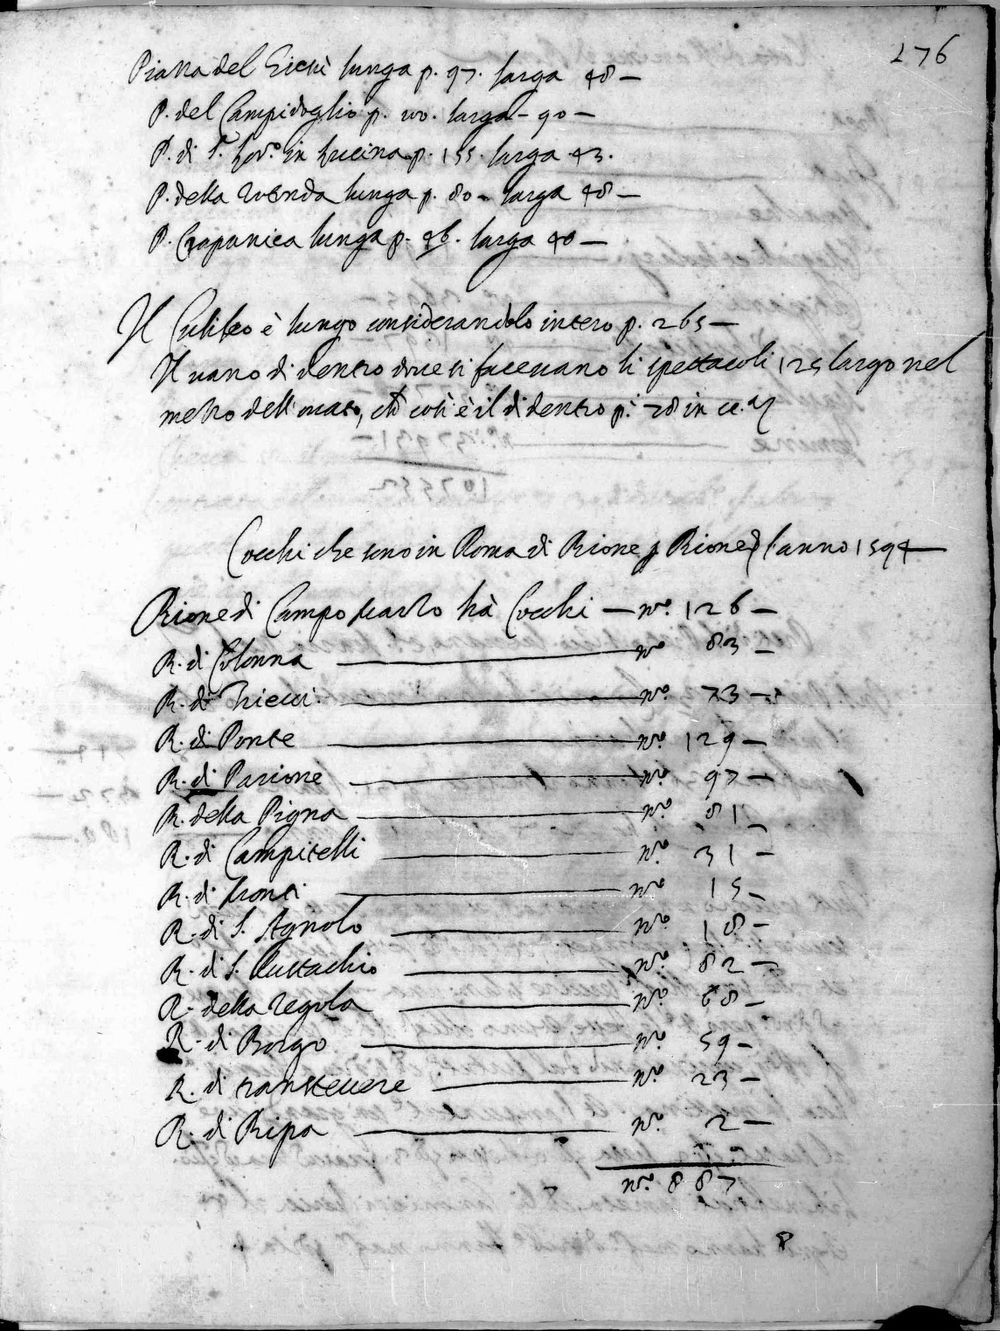 276
Piazza del Giesù lunga p. 97. larga 48 –
P. del Campidoglio p. 110. larga – 90 –
P. di S. Lor.º in Lucina p. 155. larga 43.
P. della Rotonda lunga p. 80 – larga 48 –
P. Capranica lunga p. 46. larga 40 –
Il Culiseo è lungo considerandolo intero p. 265 –
Il vano di dentro dove si facevano li spettacoli 125 largo nel
mezzo dell'ovato, che così è il di dentro p. 78 in
Cocchi che sono in Roma di Rione p Rione l'anno 1594 –
Rione di Campo Marzo hà Cocchi – nº. 126 –
R. di Colonna nº 83 –
R. di Trievi nº. 73 –
R. di Ponte nº. 129 –
R. di Parione nº. 97 –
R. della Pigna nº. 81
R. di Campitelli nº. 31 –
R. di Monti nº 15 –
R. di S. Agnolo nº 18 –
R. di S. Eustachio nº. 82 –
R. della Regola nº. 68 –
R. di Borgo nº. 59 –
R. di Transtevere nº. 23 –
R. di Ripa nº. 2 –
nº. 887